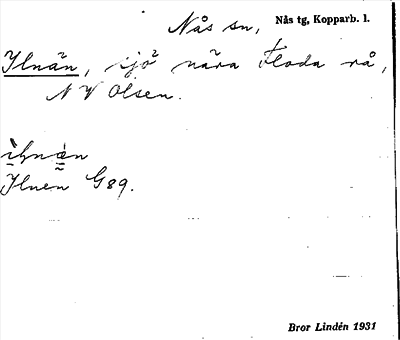 Nås sn, Nås tg, Kopparb. l.
Ilnän, sjö nära Floda rå,
N V Olsen.
ìlnàn
Ilnen G89.
Bror Lindén 1931